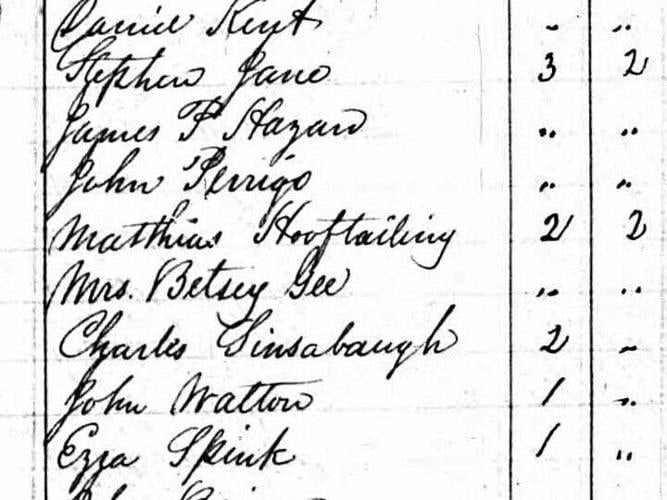 Daniel Kent " "
Stephen Jane 3 2
James F Hazard " "
John Perrigo " "
Matthias Hooftailing 2 2
Mrs. Betsey Gee " "
Charles Sinsabaugh 2 "
John Walton 1 "
Ezza Spink 1 "
John